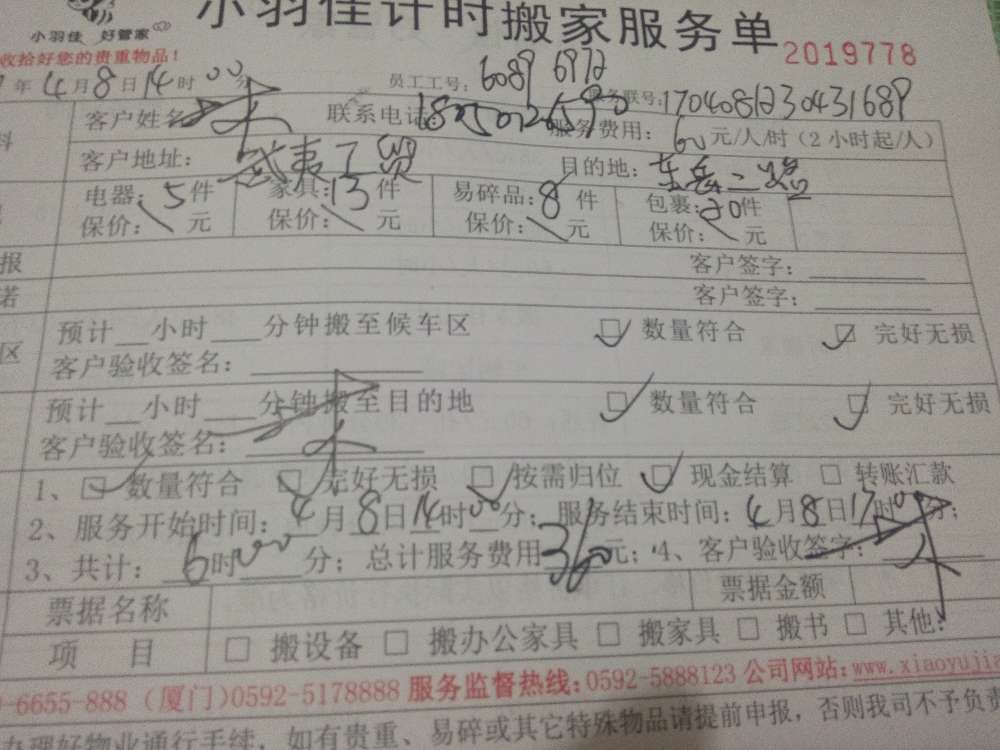 小羽佳计时搬家服务单
小羽佳 好管家
2019778
收拾好您的贵重物品！
年4月8日14时00分 员工工号：6089 6972
服务联号：1704081230431689
客户姓名 联系电话 服务费用：60元/人/时（2小时起/人）
客户地址：武夷工贸 目的地：东岳二
电器：5件 家具：13件 易碎品：8件 包裹：20件
保价： 元 保价： 元 保价： 元 保价： 元
报 客户签字：
诺 客户签字：
预计 小时 分钟搬至候车区 数量符合 完好无损
区 客户验收签名：
预计 小时 分钟搬至目的地 数量符合 完好无损
客户验收签名：
1、 数量符合 完好无损 按需归位 现金结算 转账汇款
2、服务开始时间：4月8日14时00分；服务结束时间：4月8日17时00分；
3、共计：6时00分；总计服务费用360元；4、客户验收签字：
票据名称 票据金额
项 目 搬设备 搬办公家具 搬家具 搬书 其他：
-6655-888（厦门）0592-5178888 服务监督热线：0592-5888123 公司网站：www.xiaoyujia
办理好物业通行手续，如有贵重、易碎或其它特殊物品请提前申报，否则我司不予负责